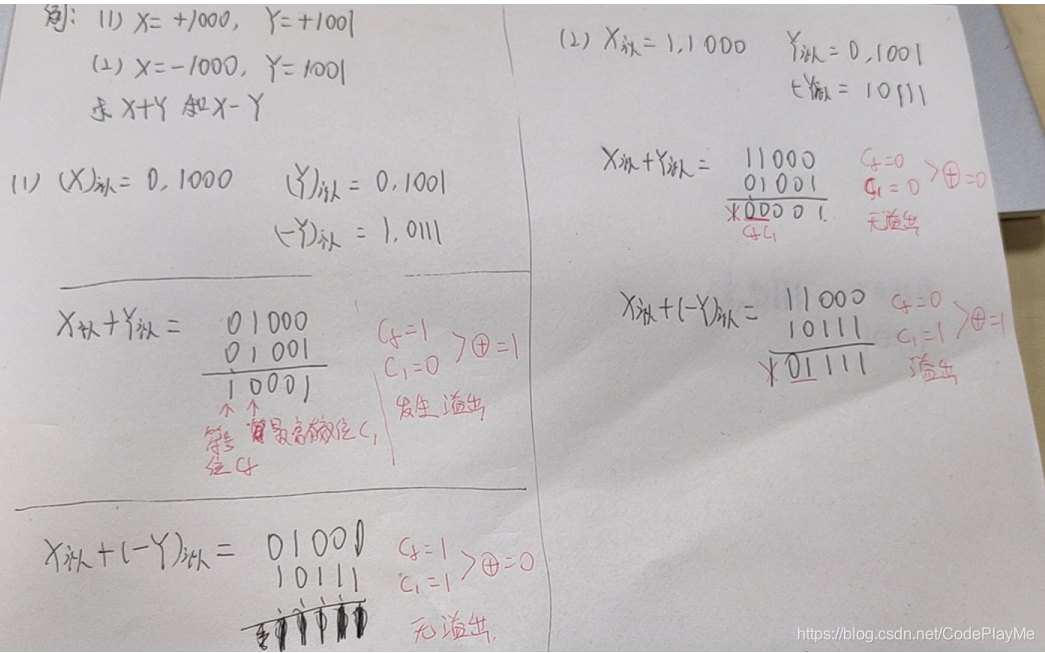 例: (1) X= +1000, Y=+1001
(2) X=-1000, Y=1001
求 X+Y 和X-Y
(1) (X)补= 0,1000 (Y)补 = 0,1001
(-Y)补 = 1,0111
X补+Y补= 01000
01001
10001
Cf=1
C1=0
>⊕=1
发生溢出
符号位Cf
最高有效位C1
X补+(-Y)补= 01000
10111
Cf=1
C1=1
>⊕=0
无溢出
(2) X补=1,1000 Y补=0,1001
[-Y]补= 10111
X补+Y补= 11000
01001
00001
CfC1
Cf=0
C1=0
>⊕=0
无溢出
X补+(-Y)补= 11000
10111
01111
Cf=0
C1=1
>⊕=1
溢出
https://blog.csdn.net/CodePlayMe